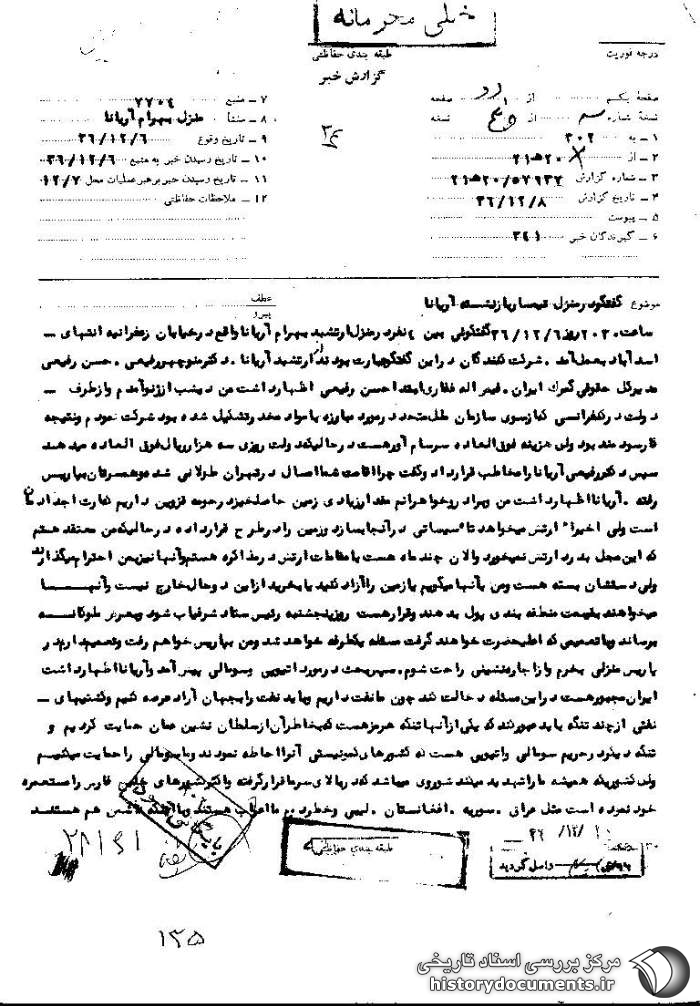 خیلی محرمانه
طبقه بندی حفاظتی
درجه فوریت
گزارش خبر
صفحه یکم از دو صفحه
نسخه شماره سه از نسخه
۱ – به ۳۰۲
۲ – از ۲۰ه۲۱
۳ – شماره گزارش ۲۱ه۲۰/۵۷۹۳۷
۴ – تاریخ گزارش ۳۶/۱۲/۸
۵ – پیوست
۶ – گیرندگان خبر ۳۴۱
۷ – منبع ۷۷۰۴
۸ – منشأ منزل بهرام آریانا
۹ – تاریخ وقوع ۳۶/۱۲/۶
۱۰ – تاریخ رسیدن خبر به منبع ۳۶/۱۲/۶
۱۱ – تاریخ رسیدن خبر برهبر عملیات محل ۱۲/۷
۱۲ – ملاحظات حفاظتی
۳۴
موضوع گفتگو در منزل تیمسار بازنشسته آریانا
عطف
پیرو
ساعت ۲۰۳۰ روز ۳۶/۱۲/۶ گفتگوئی بین ۴ نفر در منزل ارتشبد بهرام آریانا واقع در خیابان زعفرانیه انتهای –
اسدآباد بعمل آمد . شرکت کنندگان در این گفتگو عبارت بودند از ارتشبد آریانا . دکتر منوچهر رفیعی . حسن رفیعی
مدیرکل حقوقی گمرک ایران . فیض اله غفاری ابتدا حسن رفیعی اظهار داشت من دیشب از ژنو آمدم و از طرف –
دولت در کنفرانسی که از سوی سازمان ملل متحد در مورد مبارزه با مواد مخدر تشکیل شده بود شرکت نمودم و نتیجه
کار سودمند بود ولی هزینه فوق العاده سرسام آور هست در حالیکه دولت روزی سه هزار ریال فوق العاده میدهد
سپس دکتر رفیعی آریانا را مخاطب قرار داد و گفت چرا اقامت شما امسال در تهران طولانی شده و همسرتان بپاریس
رفته . آریانا اظهار داشت من و برادر و خواهرانم مقدار زیادی زمین حاصلخیز در حومه قزوین داریم که ارث اجدادی ما
است ولی اخیرا" ارتش میخواهد تأسیساتی در آنجا بسازد و زمین را در طرح قرار داده در حالیکه من معتقد هستم
که این محل بدرد ارتش نمیخورد والان چند ماه هست با مقامات ارتش در مذاکره هستم و آنها نیز بمن احترام میگذارند
ولی دستشان بسته هست ومن بآنها میگویم یا زمین را آزاد کنید یا بخرید از این دو حال خارج نیست و آنها
میخواهند بقیمت منطقه بندی پول بدهند و قرار هست روز پنجشنبه رئیس ستاد شرفیاب شود و بعرض ملوکانه
برساند و با تصمیمی که اعلیحضرت خواهند گرفت مسئله یکطرفه خواهد شد ومن بپاریس خواهم رفت و تصمیم دارم در
پاریس منزلی بخرم و از اجاره نشینی راحت شوم . سپس بحث در مورد اتیوپی و سومالی پیش آمد و آریانا اظهار داشت
ایران مجبور هست در این مسئله دخالت کند چون ما نفت داریم و باید نفت را بجهان آزاد عرضه کنیم و کشتیهای –
نفتی از چند تنگه باید عبور کنند که یکی از آنها تنگه هرمز هست که بخاطر آن از سلطان نشین عمان حمایت کردیم و
تنگه دیگر در حریم سومالی و اتیوپی هست که کشورهای کمونیستی آنرا احاطه نمودند و ما سومالی را حمایت میکنیم
ولی کشوریکه همیشه ما را تهدید میکند شوروی میباشد که در بالای سر ما قرار گرفته و اکثر کشورهای خلیج فارس را مستعمره
خود نموده است مثل عراق . سوریه . افغانستان . لیبی و خطر دوم ما اعراب هستند
بایگانی
۳۶/۱۲/۱۰
طبقه بندی حفاظتی
داسل گردید
۲۸۱۶۱
۱۳۵
مرکز بررسی اسناد تاریخی
historydocuments.ir